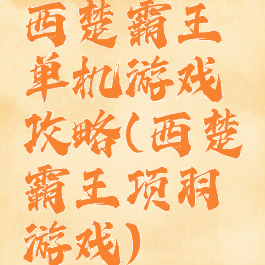 西楚霸王
单机游戏
攻略(西楚
霸王项羽
游戏)